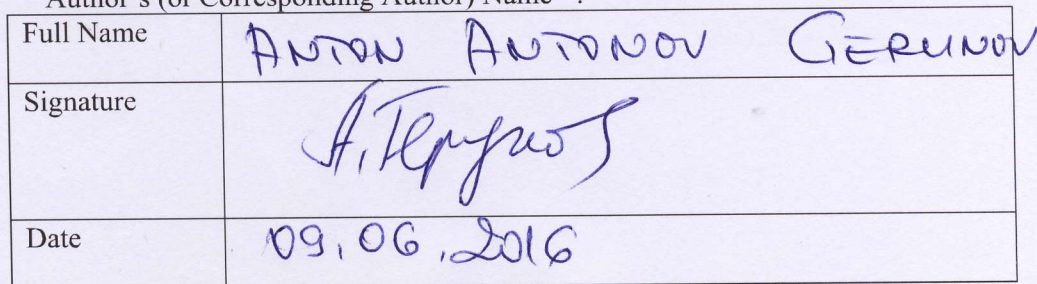 Author's (or Corresponding Author) Name
Full Name ANTON ANTONOV GERUNOV
Signature А. Герунов
Date 09.06.2016